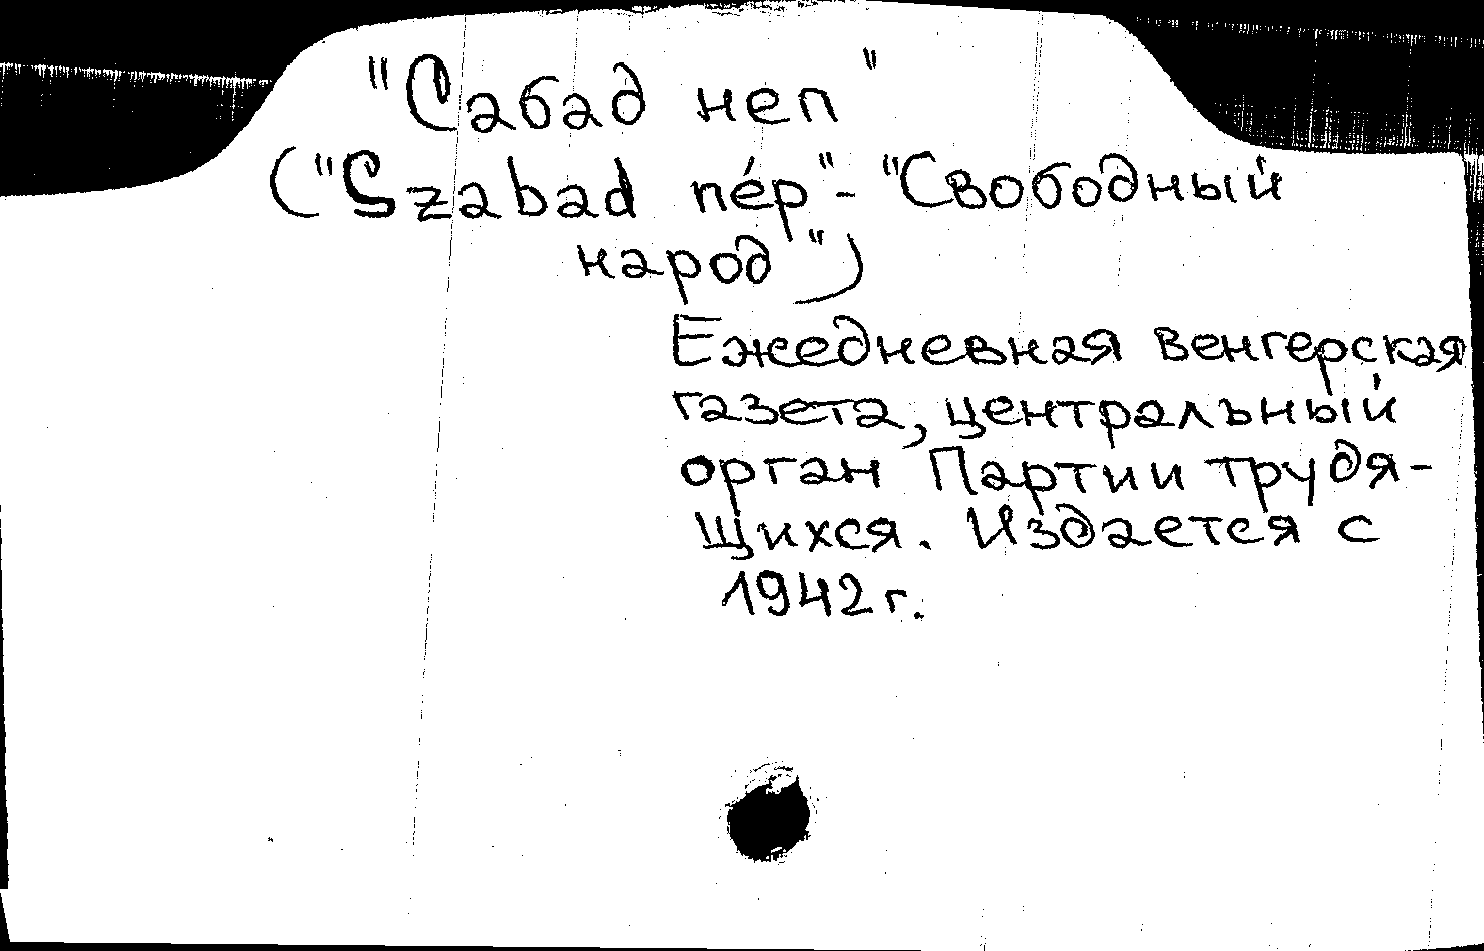 "Сабад неп"
("Szabad nép" - "Свободный
народ")
Ежедневная венгерская
газета, центральный
орган Партии трудя-
щихся. Издается с
1942 г.